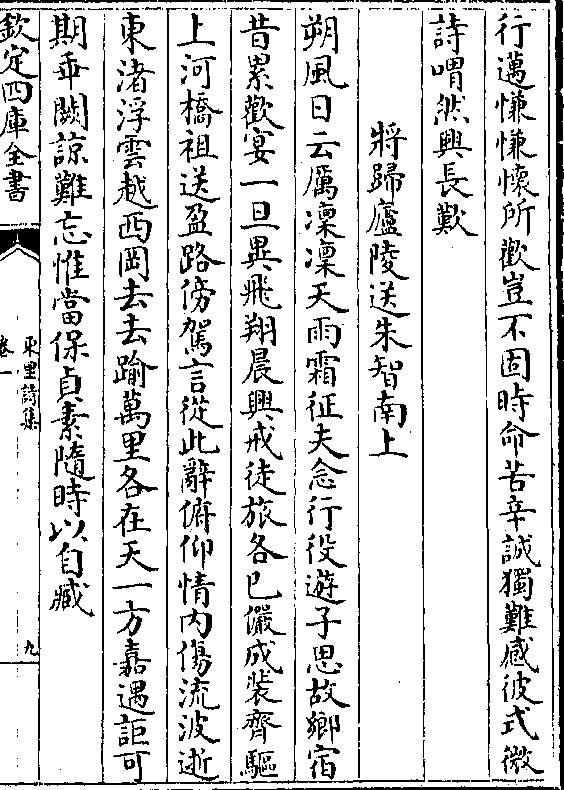 行邁慊慊懷所歡豈不固時命苦辛誠獨難感彼式微
詩喟然興長歎
將歸廬陵送朱智南上
朔風日云厲凜凜天雨霜征夫念行役遊子思故鄉宿
昔累歡宴一旦異飛翔晨興戒徒旅各已儼成裝齊驅
上河橋祖送盈路傍駕言從此辭俯仰情内傷流波逝
東渚浮雲越西岡去去踰萬里各在天一方嘉遇詎可
期乖闕諒難忘惟當保貞素隨時以自臧
欽定四庫全書
東里詩集
卷一
九